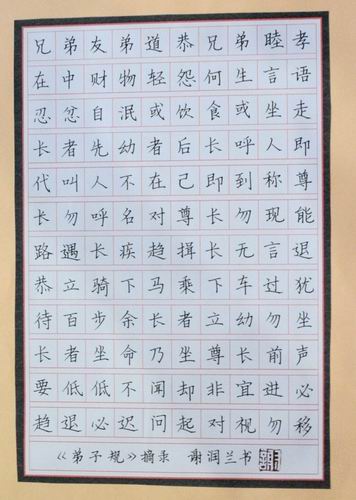 兄弟友弟道恭兄弟睦孝
在中财物轻怨何生言语
忍忿自泯或饮食或坐走
长者先幼者后长呼人即
代叫人不在己即到称尊
长勿呼名对尊长勿现能
路遇长疾趋揖长无言退
恭立骑下马乘下车过犹
待百步余长者立幼勿坐
长者坐命乃坐尊长前声
要低低不闻却非宜进必
趋退必迟问起对视勿移
《弟子规》摘录 谢润兰书